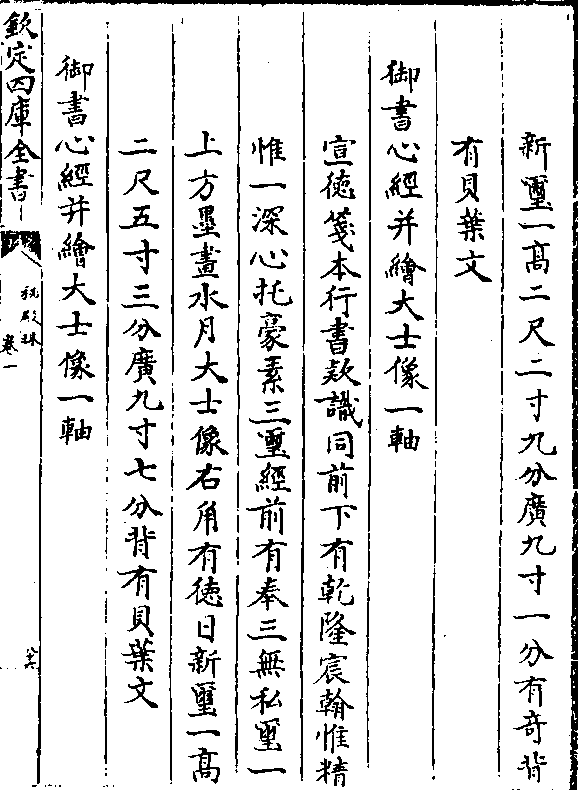 新璽一高二尺二寸九分廣九寸一分有奇背
有貝葉文
御書心經并繪大士像一軸
宣徳箋本行書款識同前下有乾隆宸翰惟精
惟一深心托豪素三璽經前有奉三無私璽一
上方墨畫水月大士像右角有徳日新璽一高
二尺五寸三分廣九寸七分背有貝葉文
御書心經并繪大士像一軸
欽定四庫全書
秘殿珠
卷一